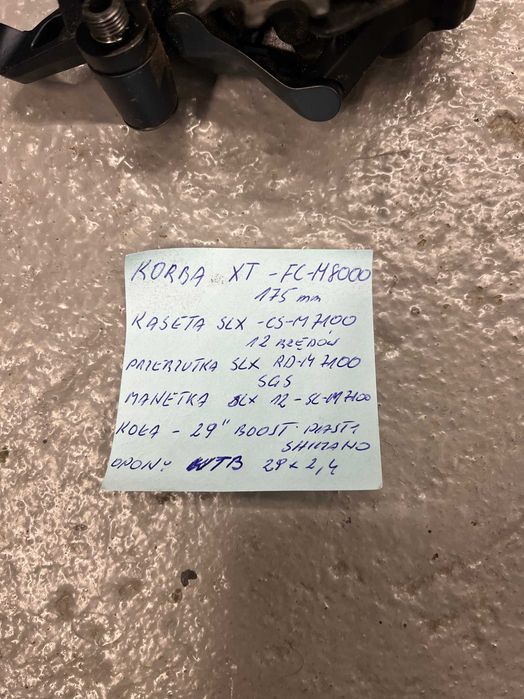 KORBA XT - FC-M8000
175 mm
KASETA SLX - CS-M7100
12 RZĘDÓW
PRZERZUTKA SLX RD-M7100
SGS
MANETKA SLX 12 - SL-M7100
KOŁA - 29" BOOST PIAST.
SHIMANO
OPONY WTB 29 x 2,4